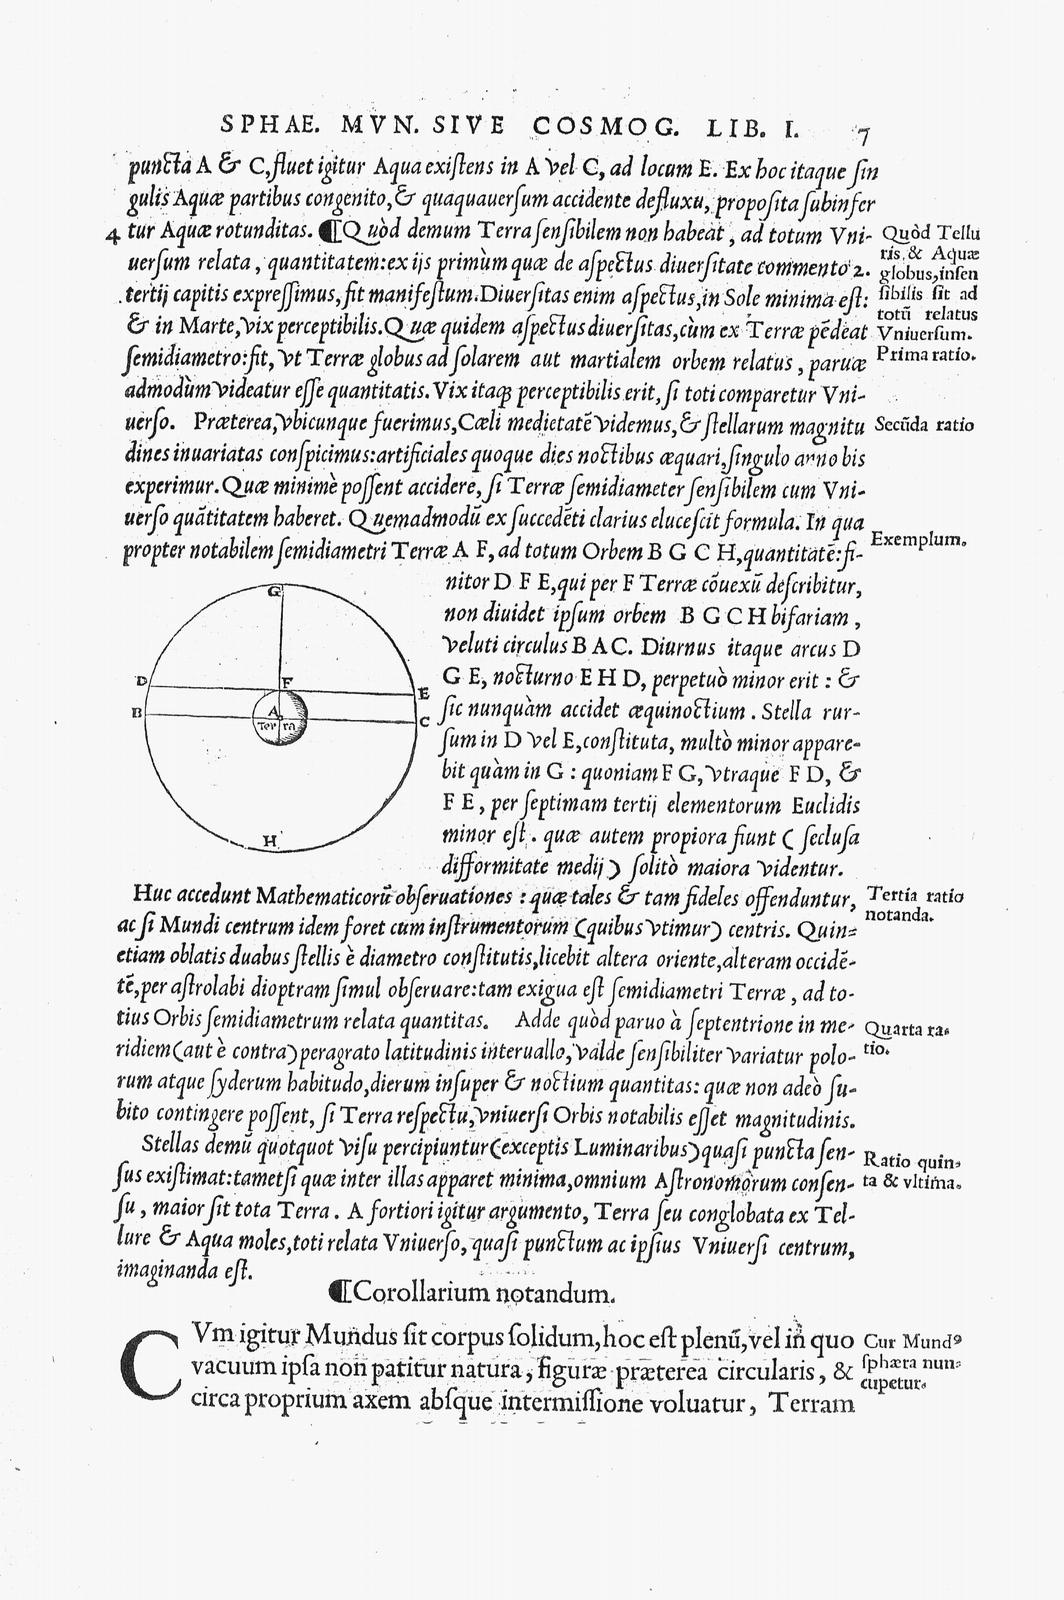 SPHAE. MVN. SIVE COSMOG. LIB. I. 7
puncta A & C, fluet igitur Aqua existens in A vel C, ad locum E. Ex hoc itaque sin
gulis Aquæ partibus congenito, & quaquauersum accidente defluxu, proposita subinfer
4 tur Aquæ rotunditas. ¶Quòd demum Terra sensibilem non habeat, ad totum Vni-
uersum relata, quantitatem: ex ijs primùm quæ de aspectus diuersitate commento 2.
tertij capitis expressimus, fit manifestum. Diuersitas enim aspectus, in Sole minima est:
& in Marte, vix perceptibilis. Quæ quidem aspectus diuersitas, cùm ex Terræ pēdeat
semidiametro: fit, vt Terræ globus ad solarem aut martialem orbem relatus, paruæ
admodùm videatur esse quantitatis. Vix itaq; perceptibilis erit, si toti comparetur Vni-
uerso. Præterea, vbicunque fuerimus, Cæli medietatē videmus, & stellarum magnitu
dines inuariatas conspicimus: artificiales quoque dies noctibus æquari, singulo anno bis
experimur. Quæ minimè possent accidere, si Terræ semidiameter sensibilem cum Vni-
uerso quātitatem haberet. Quemadmodū ex succedēti clarius elucescit formula. In qua
propter notabilem semidiametri Terræ A F, ad totum Orbem B G C H, quantitatē: fi-
nitor D F E, qui per F Terræ cōuexū describitur,
non diuidet ipsum orbem B G C H bifariam,
veluti circulus B A C. Diurnus itaque arcus D
G E, nocturno E H D, perpetuò minor erit: &
sic nunquàm accidet æquinoctium. Stella rur-
sum in D vel E, constituta, multò minor appare-
bit quàm in G: quoniam F G, vtraque F D, &
F E, per septimam tertij elementorum Euclidis
minor est. quæ autem propiora fiunt (seclusa
difformitate medij) solitò maiora videntur.
Huc accedunt Mathematicorū obseruationes: quæ tales & tam fideles offenduntur,
ac si Mundi centrum idem foret cum instrumentorum (quibus vtimur) centris. Quin-
etiam oblatis duabus stellis è diametro constitutis, licebit altera oriente, alteram occidē-
tē, per astrolabi dioptram simul obseruare: tam exigua est semidiametri Terræ, ad to-
tius Orbis semidiametrum relata quantitas. Adde quòd paruo à septentrione in me-
ridiem (aut è contra) peragrato latitudinis interuallo, valde sensibiliter variatur polo-
rum atque syderum habitudo, dierum insuper & noctium quantitas: quæ non adeò su-
bito contingere possent, si Terra respectu, vniuersi Orbis notabilis esset magnitudinis.
Stellas demū quotquot visu percipiuntur (exceptis Luminaribus) quasi puncta sen-
sus existimat: tametsi quæ inter illas apparet minima, omnium Astronomorum consen-
su, maior sit tota Terra. A fortiori igitur argumento, Terra seu conglobata ex Tel-
lure & Aqua moles, toti relata Vniuerso, quasi punctum ac ipsius Vniuersi centrum,
imaginanda est.
¶Corollarium notandum.
CVm igitur Mundus sit corpus solidum, hoc est plenū, vel in quo
vacuum ipsa non patitur natura, figuræ præterea circularis, &
circa proprium axem absque intermissione voluatur, Terram
Quòd Tellu
ris, & Aquæ
globus, insen
sibilis sit ad
totū relatus
Vniuersum.
Prima ratio.
Secūda ratio
Exemplum.
Tertia ratio
notanda.
Quarta ra-
tio.
Ratio quin-
ta & vltima.
Cur Mundꝰ
sphæra nun-
cupetur.
G
D
F
E
B
A
C
Terra
H